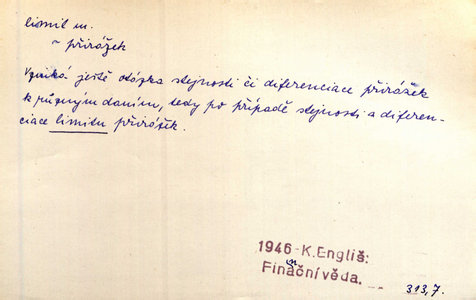 limit m.
~ přirážek
Vzniká ještě otázka stejnosti či diferenciace přirážek
k různým daním, tedy po případě stejnosti a diferen-
ciace limitu přirážek.
1946-K.Engliš:
Finanční věda.
313,7.